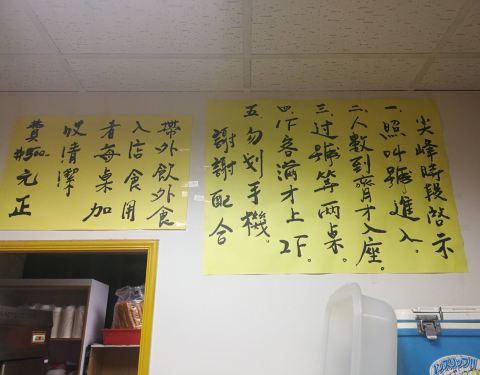 尖峰時段啓示
一.照叫號進入.
二.人數到齊才入座.
三.过號等兩桌.
四.下客滿才上2F.
五.勿划手機.
謝謝配合
帶外飲外食
入店食用
者每桌加
收清潔
費$500元正
ノンスリップ!!